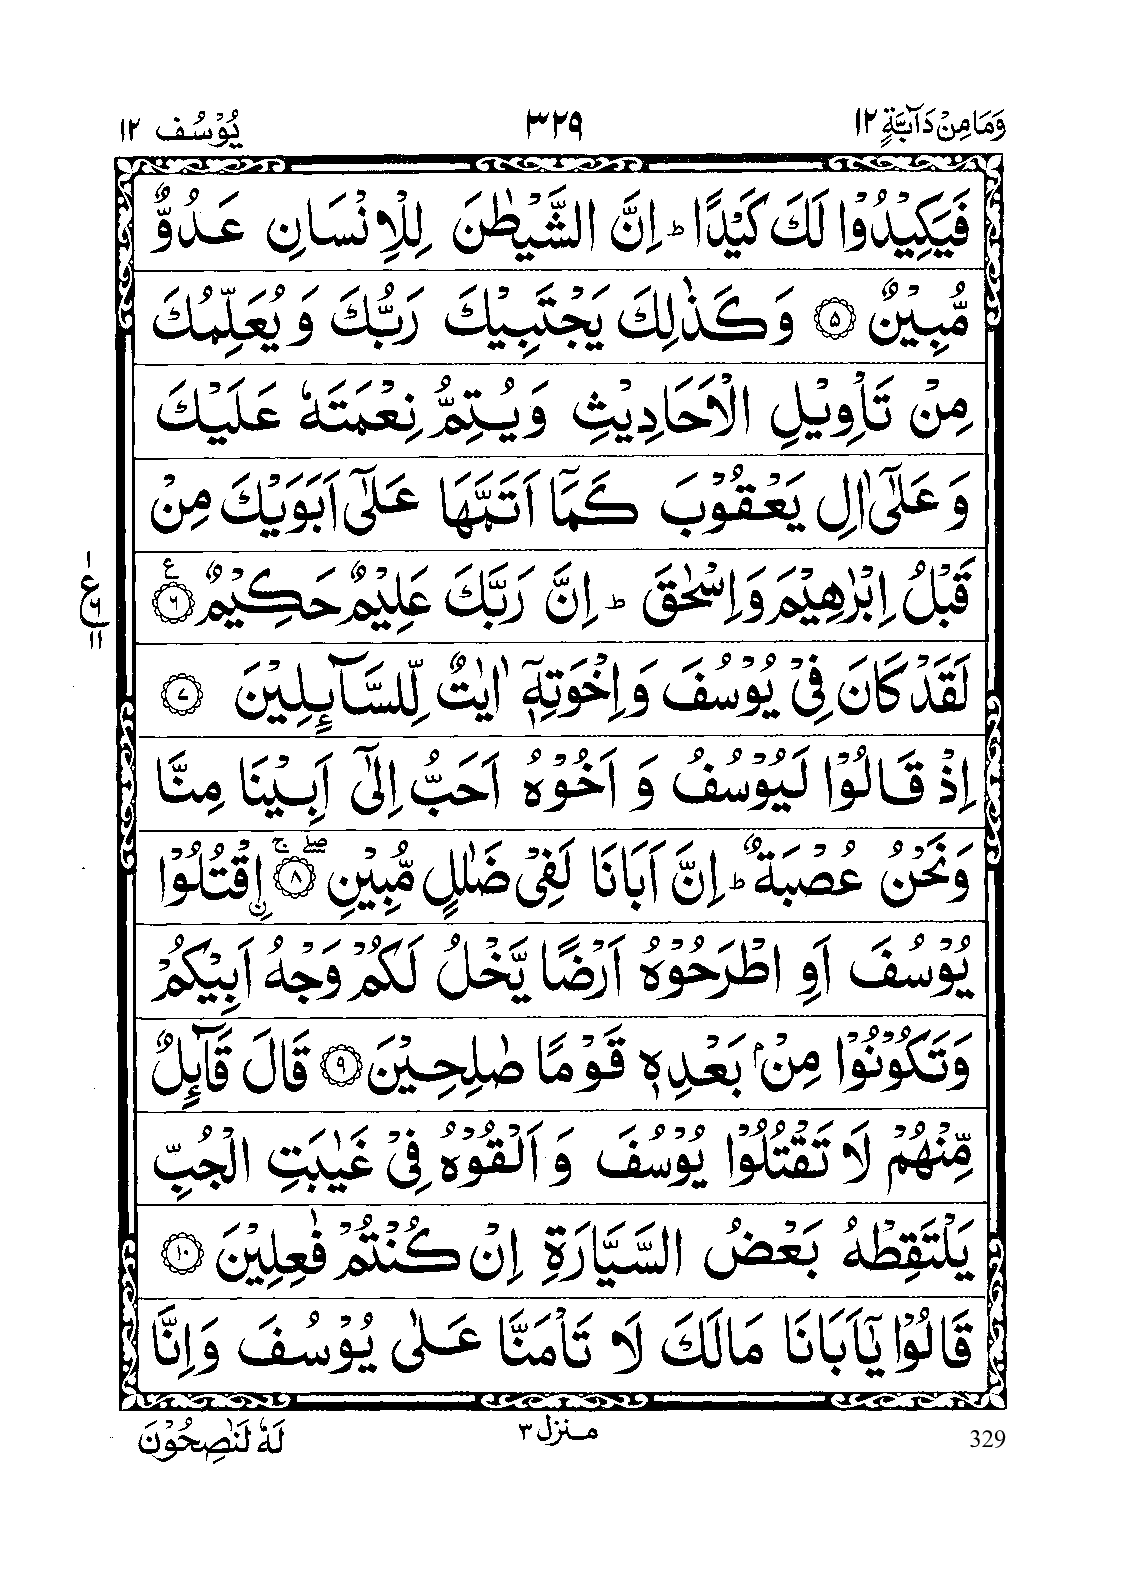 وَمَا مِنْ دَآبَّةٍ ١٢ ٣٢٩ يُوْسُف ١٢
فَيَكِيْدُوْا لَكَ كَيْدًا ؕ اِنَّ الشَّيْطٰنَ لِلْاِنْسَانِ عَدُوٌّ
مُّبِيْنٌ ۝٥ وَ كَذٰلِكَ يَجْتَبِيْكَ رَبُّكَ وَ يُعَلِّمُكَ
مِنْ تَاْوِيْلِ الْاَحَادِيْثِ وَ يُتِمُّ نِعْمَتَهٗ عَلَيْكَ
وَ عَلٰۤى اٰلِ يَعْقُوْبَ كَمَاۤ اَتَمَّهَا عَلٰۤى اَبَوَيْكَ مِنْ
قَبْلُ اِبْرٰهِيْمَ وَ اِسْحٰقَ ؕ اِنَّ رَبَّكَ عَلِيْمٌ حَكِيْمٌ ۝٦ ع
١ ع ٦ ١١
لَقَدْ كَانَ فِيْ يُوْسُفَ وَ اِخْوَتِهٖۤ اٰيٰتٌ لِّلسَّآىِٕلِيْنَ ۝٧
اِذْ قَالُوْا لَيُوْسُفُ وَ اَخُوْهُ اَحَبُّ اِلٰۤى اَبِيْنَا مِنَّا
وَ نَحْنُ عُصْبَةٌ ؕ اِنَّ اَبَانَا لَفِيْ ضَلٰلٍ مُّبِيْنِ ۝٨ ۖۚ اۨقْتُلُوْا
يُوْسُفَ اَوِ اطْرَحُوْهُ اَرْضًا يَّخْلُ لَكُمْ وَجْهُ اَبِيْكُمْ
وَ تَكُوْنُوْا مِنْۢ بَعْدِهٖ قَوْمًا صٰلِحِيْنَ ۝٩ قَالَ قَآىِٕلٌ
مِّنْهُمْ لَا تَقْتُلُوْا يُوْسُفَ وَ اَلْقُوْهُ فِيْ غَيٰبَتِ الْجُبِّ
يَلْتَقِطْهُ بَعْضُ السَّيَّارَةِ اِنْ كُنْتُمْ فٰعِلِيْنَ ۝١٠
قَالُوْا يٰۤاَبَانَا مَالَكَ لَا تَاْمَنَّا عَلٰى يُوْسُفَ وَ اِنَّا
329 منزل ٣ لَهٗ لَنٰصِحُوْنَ